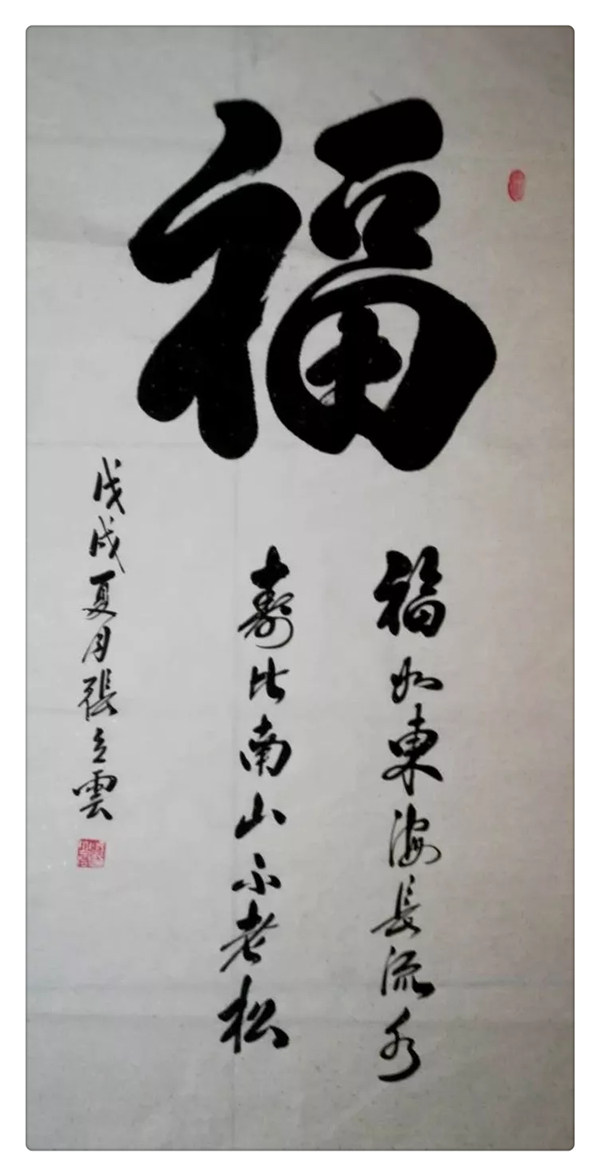 福
福如東海長流水
壽比南山不老松
戊戌夏月張立雲